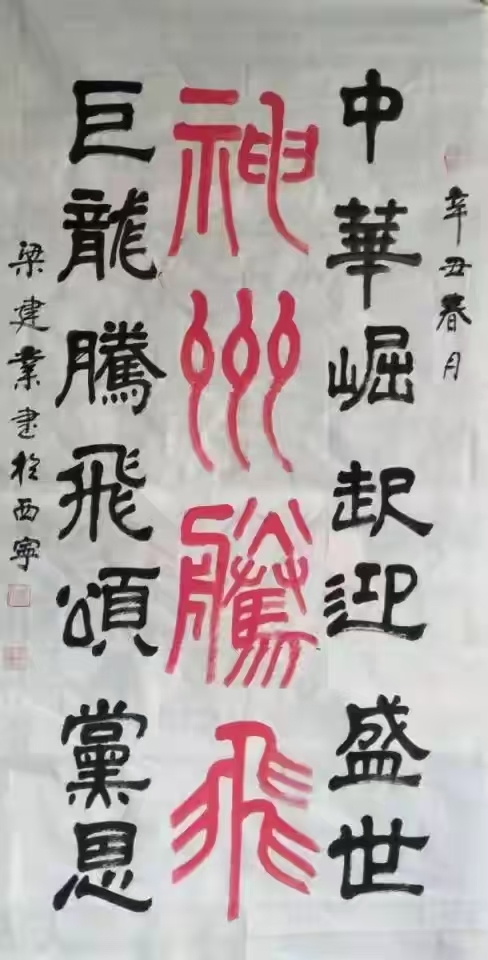 辛丑春月
中華崛起迎盛世
神州騰飛
巨龍騰飛頌黨恩
梁建業書於西寧